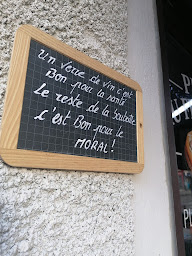 Un verre de vin c'est
Bon pour la santé
Le reste de la bouteille
c'est Bon pour le
MORAL!